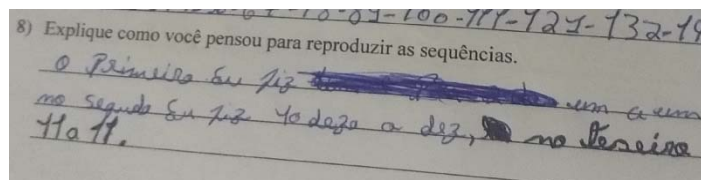 -100-111-121-132-14
8) Explique como você pensou para reproduzir as sequências.
O Primeiro Eu fiz um a um
no segudo Eu fiz 10 deze a dez, no terseiro
11 a 11.